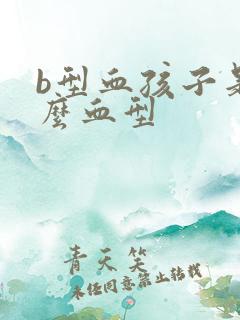 b型血孩子是
麼血型
青天笑
未经同意禁止转载